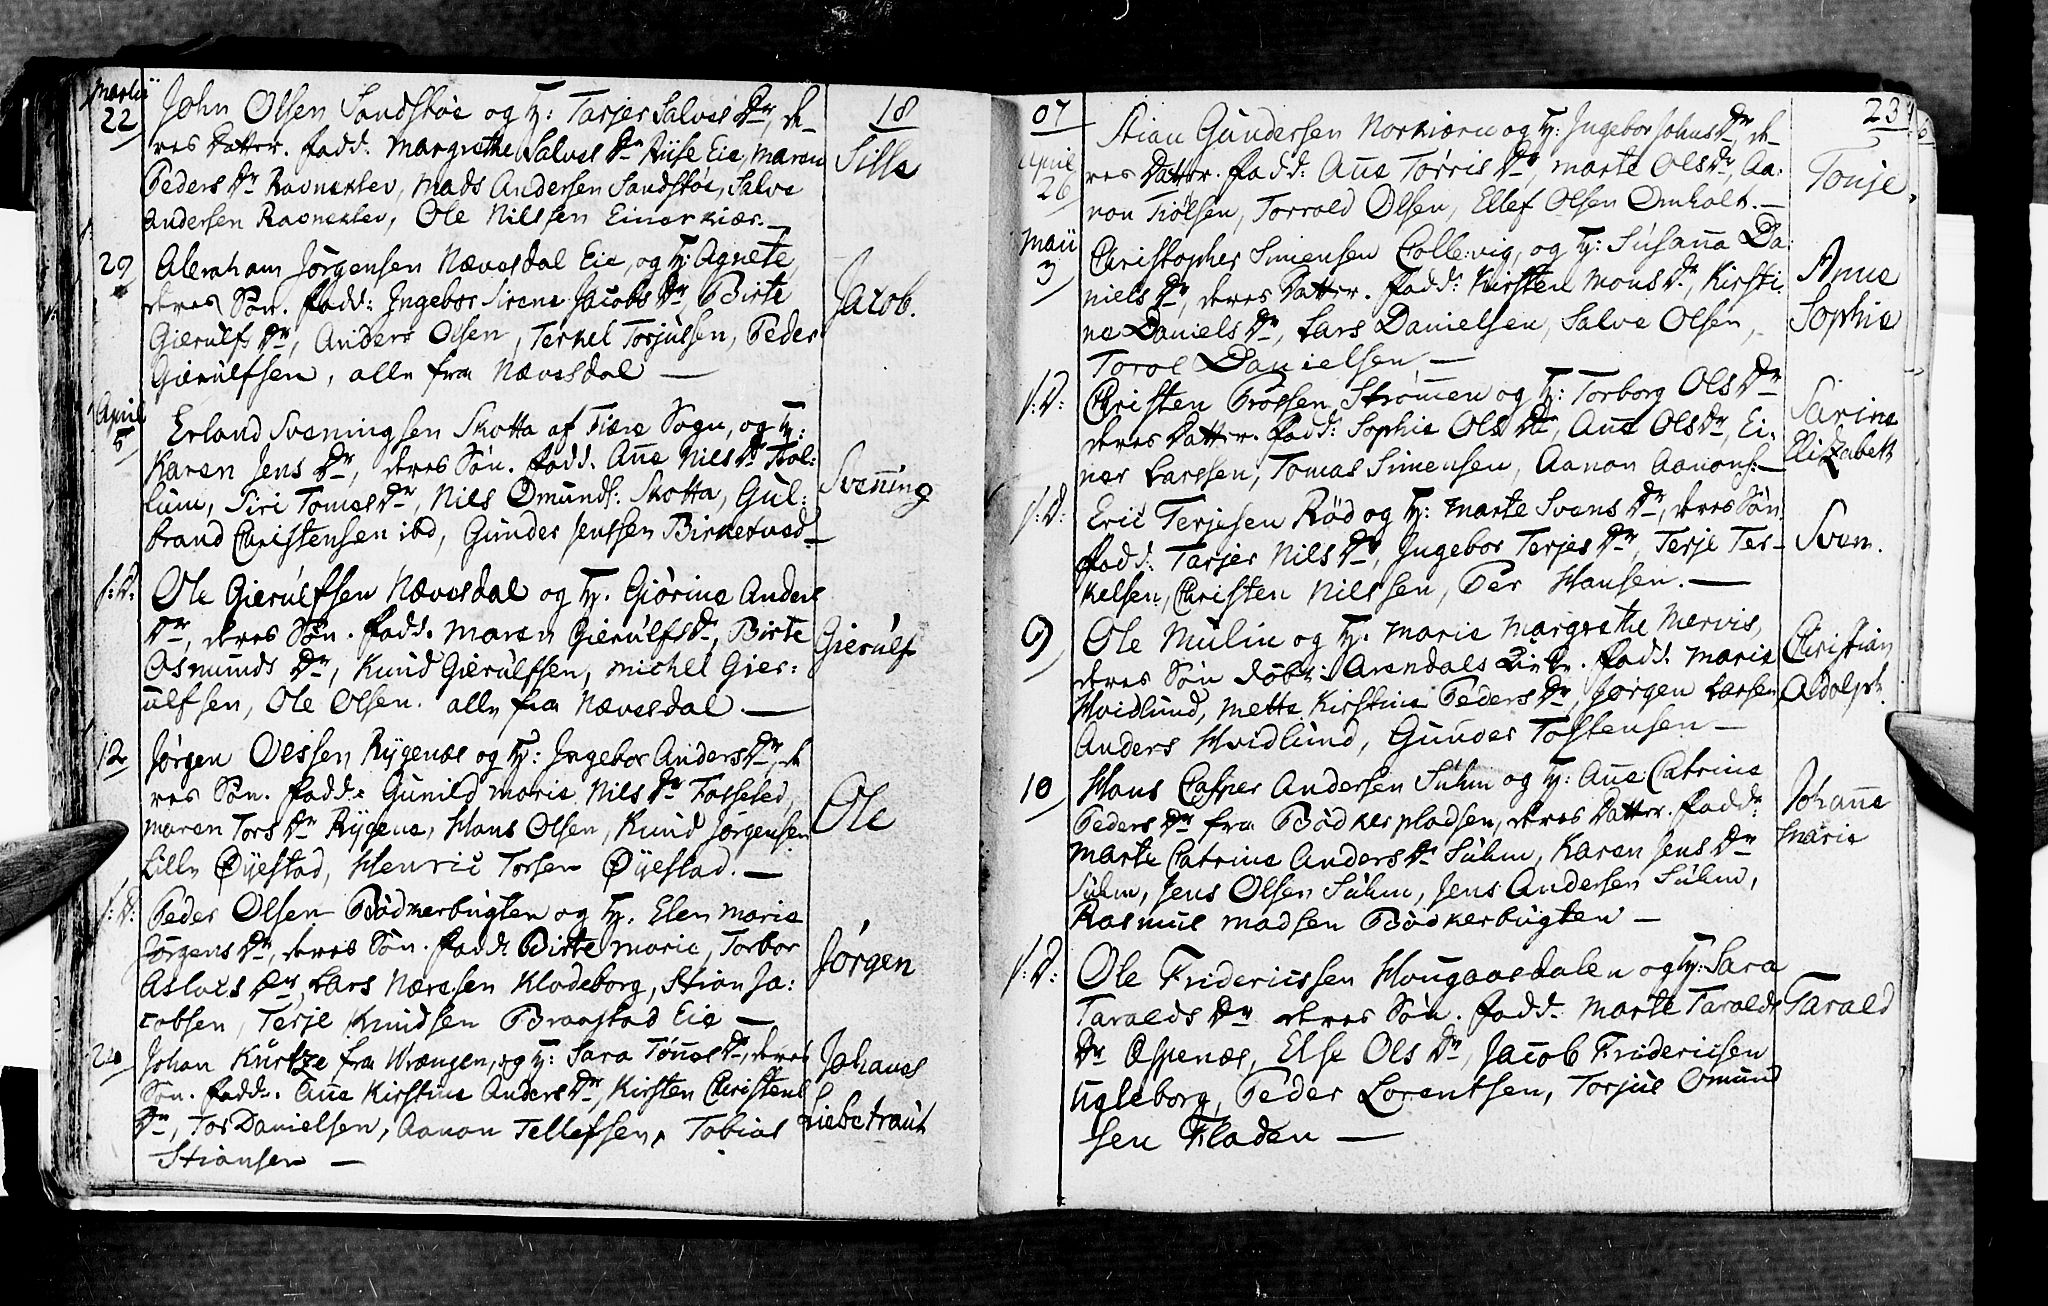 Martii
22
18
John Olsen Sandstøe og H: Tarjer Salves Dr, de-
res Datter. fadd. Margrethe Salves Dr Riise Eie, Maren
Peders Dr Ravneklev, Mads Andersen Sandstøe, Salve
Andersen Ravneklev, Ole Nilssen Einerkiær.
Sille
29
Abraham Jørgensen Nævesdal Eie, og H: Agnete
deres Søn. fadd: Ingebor Sirene Jacobs Dr Birte
Gierulfs Dr, Anders Olsen, Terkel Torjulsen, Peder
Gierulfsen, alle fra Nævesdal —
Jacob.
April
5
Erland Sveningsen Skotta af Fiære Sogn, og H:
Karen Jens Dr, deres Søn. fadd. Ane Nils Dr
lum, Siri Tomes Dr, Nils Omunds: Skotta, Gul:
brand Christensen ibd, Gunder Jenssen Birketved
Svenning
s: D:
Ole Gierulfsen Nævesdal og H. Giørine Anders
Dr, deres Søn. fadd. Maren Gierulfs Dr, Birte
Osmunds Dr, Knud Gierulfsen, Michel Gier:
ulfsen, Ole Olsen. alle fra Nævesdal. —
Gierulf
12
Jørgen Olssen Rygenæs og H: Ingebor Anders Dr, de
res Søn. fadd: Gunild Marie Nils Dr
Maren Tors Dr Rygene, Hans Olsen, Knud Jørgensen
Lille Øyestad, Henric Torsen Øyestad. —
Ole
s: D:
Peder Olsen Bødkerbugten og H. Elen Marie
Jørgens Dr, deres Søn. fadd: Birte Marie, Torbor
Aslacs Dr, Lars Næresen Klodeborg, Stian Ja:
cobsen, Terje Knudsen Braastad Eie —
Jørgen
Johan Kurtze fra Wrængen, og H: Sara Tønnes Dr, deres
Søn. fadd. Ane Kirstine Anders Dr, Kirsten Christens
Dr, Tor Danielsen, Aanon Tellefsen, Tobias
Stiansen —
Johannes
Liebetraut
07
234
April
26
Stian Gundersen Norkiærn og H: Ingebor Johns Dr de-
res Datter. fadd: Ane Torris Dr, Marte Ols Dr, Aa:
non Tiølsen, Torvald Olsen, Ellef Olsen Omholt. —
Tonje.
Maii
3
Christopher Simensen Collevig, og H: Susanna Da:
niels Dr, deres Datter. fadd: Kirsten Mons Dr, Kirsti:
ne Daniels Dr, Lars Danielsen, Salve Olsen,
Torol Danielsen —
Anne
Sophie
s: D:
Christen Krossen Strømmen og H: Torborg Ols Dr
deres Datter. fadd: Sophie Ols Dr, Ane Ols Dr, Ei:
ner Larssen, Tomas Simensen, Aanon Aanons: —
Sarine
Elizabeth
s: D:
Eric Terjesen Rød og H: Marte Svens Dr, deres Søn.
fadd: Tarjer Nils Dr, Ingebor Terjes Dr, Terje Ter-
kelsen, Christen Nilssen, Per Hansen. —
Sven.
9
Ole Mulin og H. Marie Margrethe Mervis,
deres Søn døbt i Arendals Kirke. fadd. Marie
Hvidlund, Mette Kirstine Peders Dr, Jørgen Larsen
Anders Hvidlund, Gunder Tostensen —
Christian
Adolph.
10
Hans Casper Andersen Suhm og H: Ane Catrine
Peders Dr fra Bødkerpladsen, deres Datter. fadd:
Marte Catrine Anders Dr Suhm, Karen Jens Dr
Suhm, Jens Olsen Suhm, Jens Andersen Suhm,
Rasmus Madsen Bødkerbugten —
Johanne
Marie
s: D:
Ole Fridericssen Hougaasdalen og H: Sara
Taralds Dr deres Søn. fadd: Marte Taralds
Dr Aspenæs, Else Ols Dr, Jacob Fridericsen
Ugleborg, Peder Lorentsen, Torjus Omund
sen Fladen —
Tarald